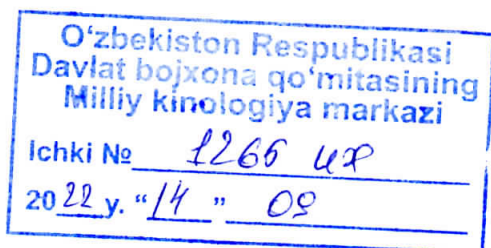 O‘zbekiston Respublikasi
Davlat bojxona qo‘mitasining
Milliy kinologiya markazi
Ichki № 1266 их
2022 y. “14” 09